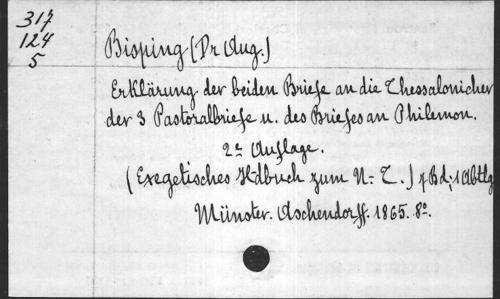 317
124
5
Bisping (Dr Aug.)
Erklärung der beiden Briefe an die Thessalonicher
der 3 Pastoralbriefe u. des Briefes an Philemon.
2te Auflage.
(Exegetisches Hdbuch zum N. T.) Bd, 1 Abtlg
Münster. Aschendorff. 1865. 8º.